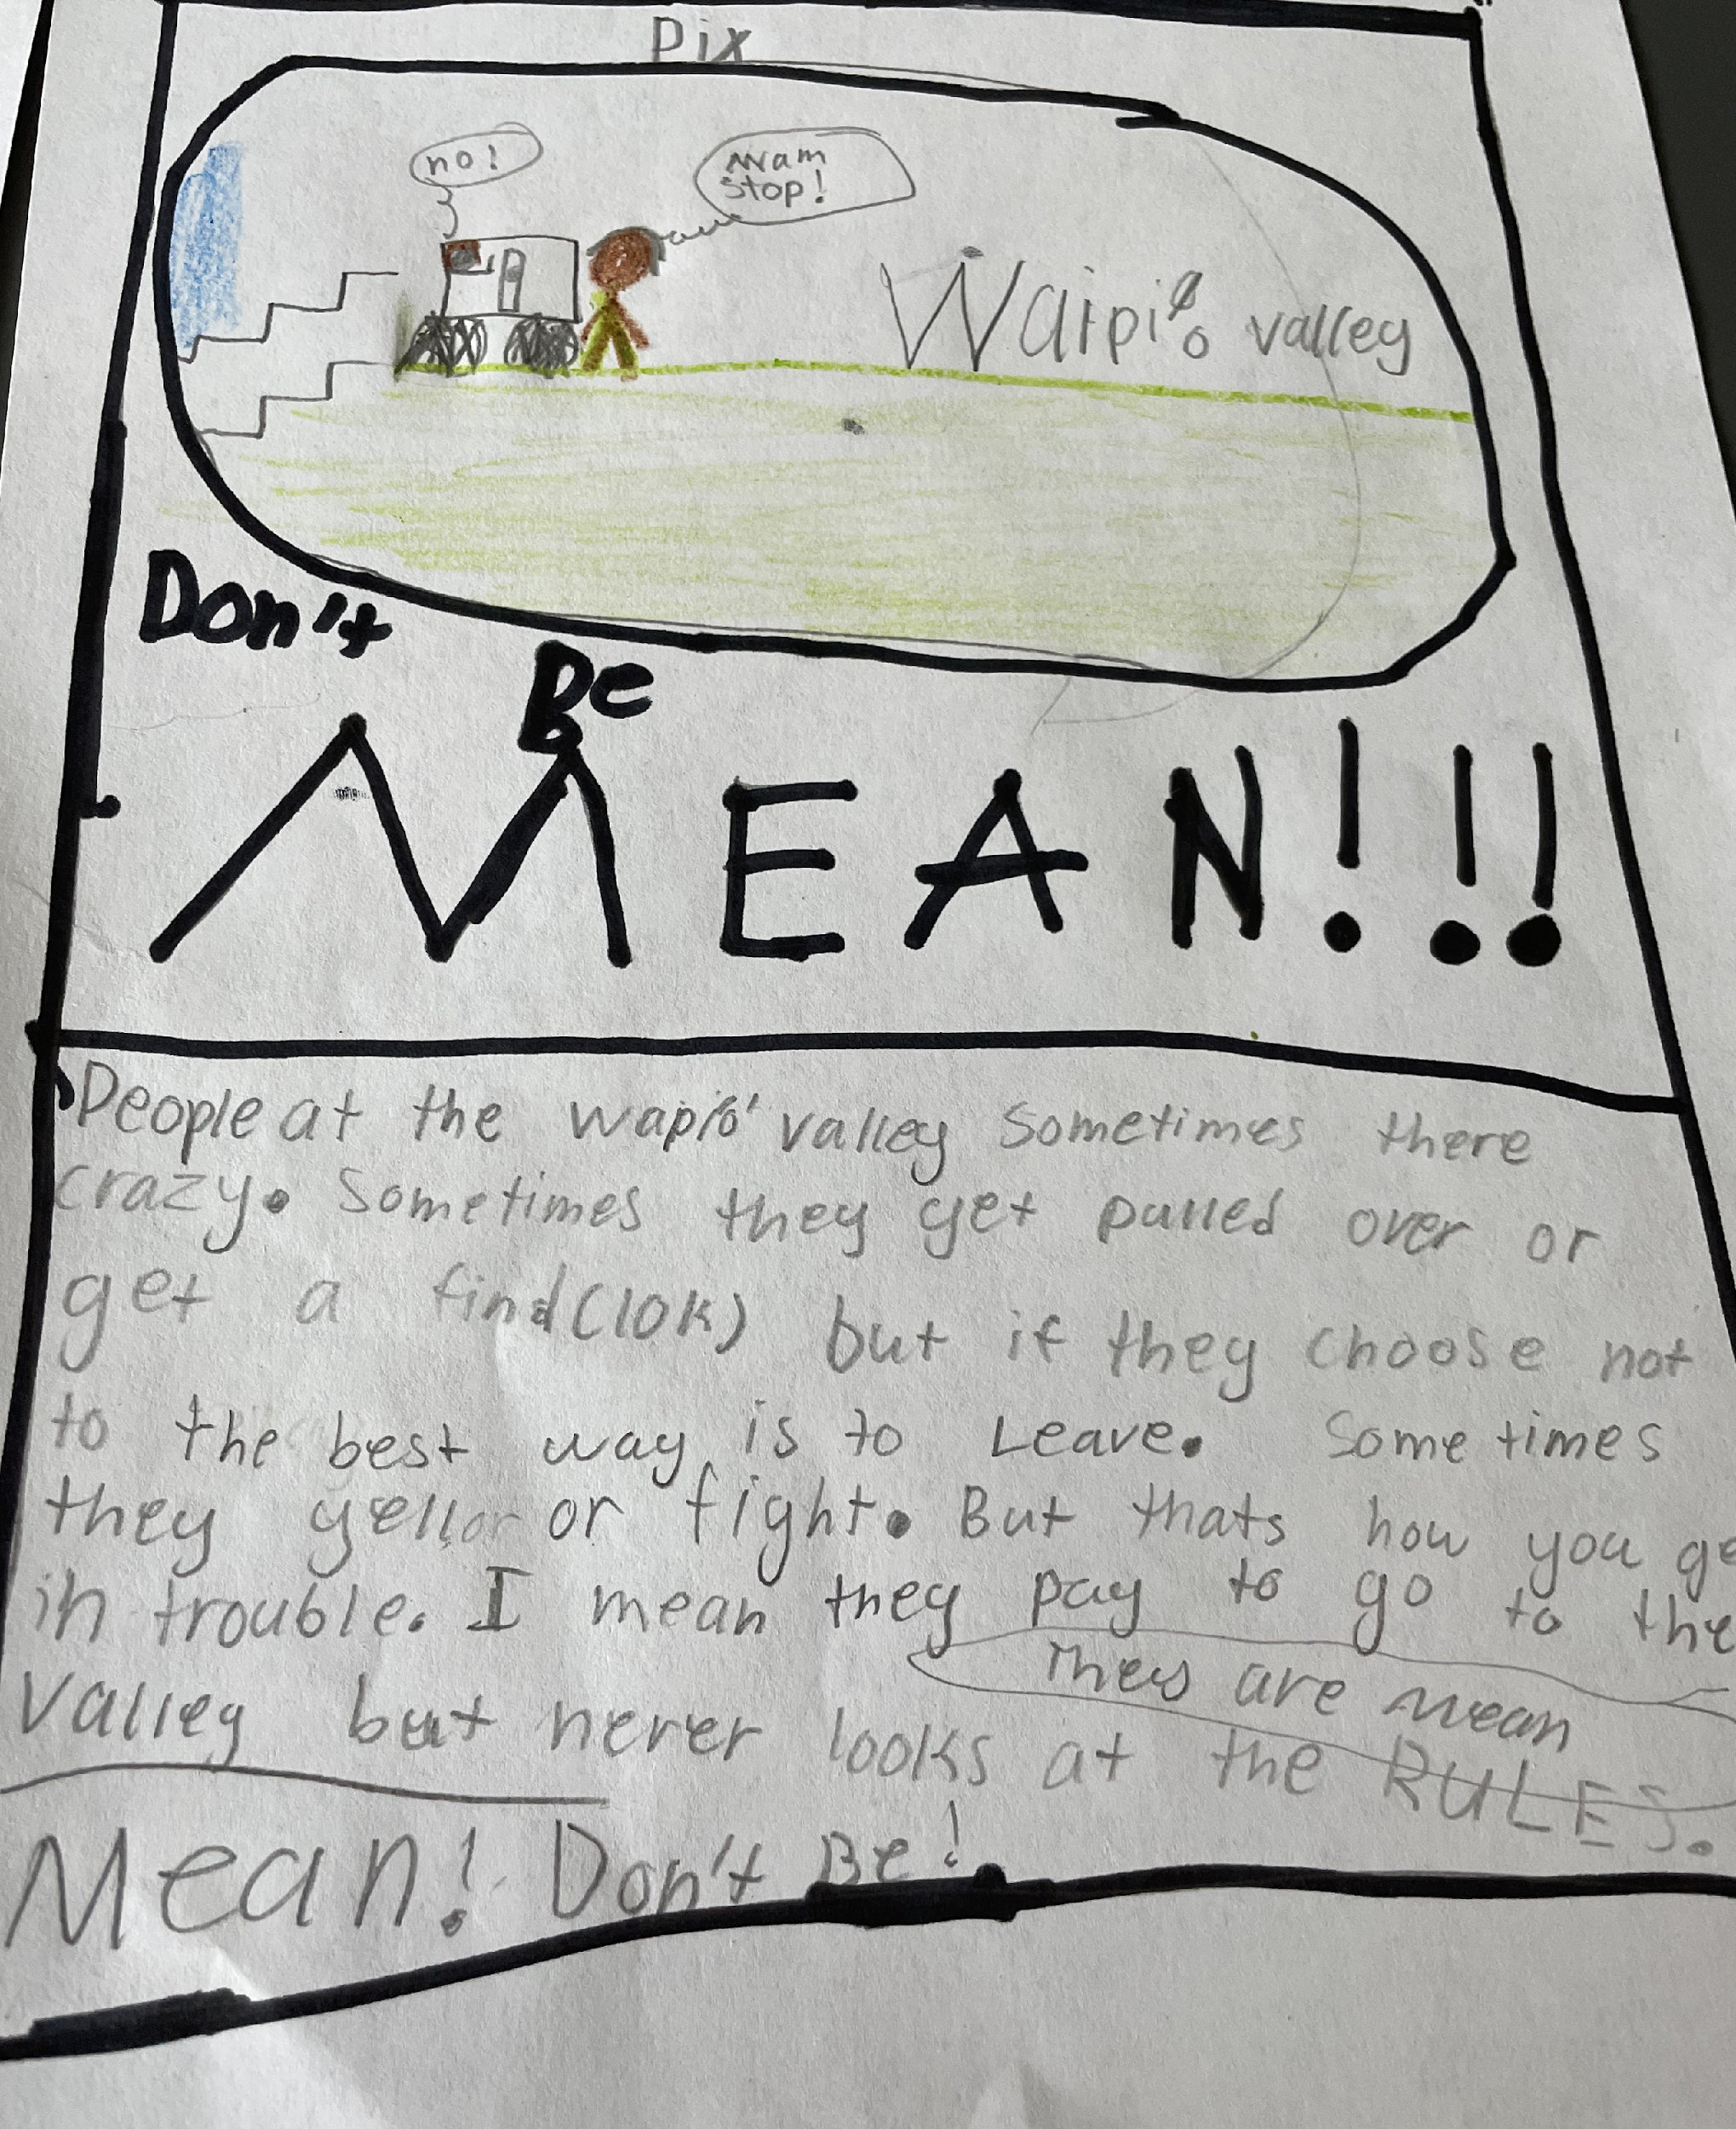 Pix
no!
Mam
stop!
Waipi'o valley
Don't
Be
MEAN!!!
People at the wapio' valley Sometimes there
crazy. Sometimes they get pulled over or
get a find (10K) but if they choose not
to the best way is to Leave. Sometimes
they yell or fight. But thats how you ge
in trouble. I mean they pay to go to the
They are mean
Valley but never looks at the RULES.
Mean! Don't Be!